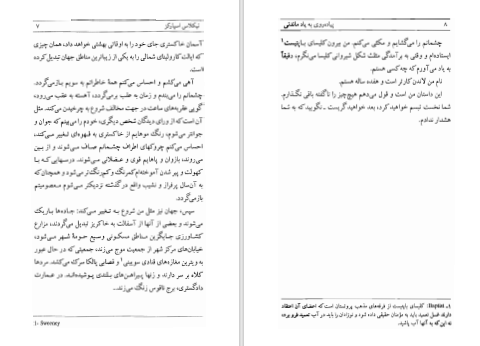 نیکلاس اسپارکز ۷
آسمان خاکستری جای خود را به اوقاتی بهشتی خواهد داد، همان چیزی
که ایالت کارولینای شمالی را به یکی از زیباترین مناطق جهان تبدیل کرده
است.
آهی می‌کشم و احساس می‌کنم همهٔ خاطراتم به سویم بازمی‌گردد.
چشمانم را می‌بندم و زمان به عقب برمی‌گردد، آهسته به عقب می‌رود،
گویی عقربه‌های ساعت در جهت مخالف شروع به چرخیدن می‌کند. مثل
آن است که از ورای دیدگان شخص دیگری، خودم را می‌بینم که جوان و
جوانتر می‌شوم، رنگ موهایم از خاکستری به قهوه‌ای تغییر می‌کند،
احساس می‌کنم چروکهای اطراف چشمانم صاف می‌شوند و از بین
می‌روند، بازوان و پاهایم قوی و عضلانی می‌شوند. درسهایی که با
کهولت و پیر شدن آموخته‌ام کمرنگ و کم‌رنگ‌تر می‌شود و همچنان که
به آن سال پرفراز و نشیب واقع در گذشته نزدیکتر می‌شوم معصومیتم
بازمی‌گردد.
سپس، جهان نیز مثل من شروع به تغییر می‌کند: جاده‌ها باریک
می‌شوند و بعضی از آنها از آسفالت به خاکریز تبدیل می‌گردند، مزارع
کشاورزی جایگزین مناطق مسکونی وسیع حومهٔ شهر می‌شود،
خیابان‌های مرکز شهر از جمعیت موج می‌زند، جمعیتی که در حال عبور
به ویترین مغازه‌های قنادی سویینی۱ و قصابی پالکا می‌نگرند. مردها
کلاه بر سر دارند و زنها پیراهن‌های بلندی پوشیده‌اند. در عمارت
دادگستری، برج ناقوس زنگ می‌زند...
1- Sweeney
۸ پیاده‌روی به یاد ماندنی
چشمانم را می‌گشایم و مکثی می‌کنم. من بیرون کلیسای باپتیست۱
ایستاده‌ام و وقتی به برآمدگی مثلث شکل شیروانی کلیسا می‌نگرم، دقیقاً
به یاد می‌آورم که چه کسی هستم.
نام من لاندن کارتر است و هفده ساله هستم.
این داستان من است و قول می‌دهم هیچ‌چیز را ناگفته باقی نگذارم.
شما نخست تبسم خواهید کرد، بعد خواهید گریست ـ نگویید که به شما
هشدار ندادم.
۱ـ Baptist: کلیسای باپتیست از فرقه‌های مذهب پروتستان است که اعضای آن اعتقاد
دارند غسل تعمید باید به مؤمنان حقیقی داده شود و نوزادان را باید در آب تعمید فرو برده
نه این‌که به آنها آب پاشید.